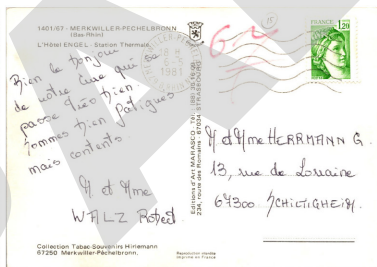 1401/67 - MERKWILLER-PECHELBRONN
(Bas-Rhin)
L'Hôtel ENGEL - Station Thermale.
Bien le bonjour
de notre cure qui se
passe très bien.
Sommes bien fatigués
mais contents.
M et Mme
WALZ Robert
Collection Tabac-Souvenirs Hirlemann
67250 Merkwiller-Péchelbronn.
Editions d'Art MARASCO - Tél.: (88) 30
234, route des Romains - 67034 STRASBOURG
Reproduction interdite
Imprimé en France
18 H
1981
15
FRANCE
1,20
M et Mme HERRMANN G.
13, rue de Lorraine
67300 SCHILTIGHEIM.